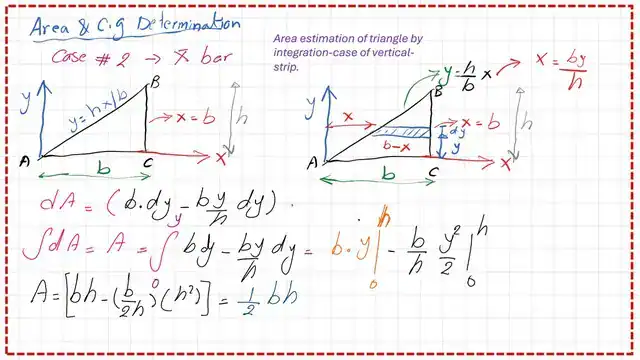 Area & C.g Determination
Case # 2 → x̄ bar
Area estimation of triangle by
integration-case of vertical-
strip.
y = h/b x
x = by/h
B
y
y = hx/b
→ x = b
h
A
C
x
b
B
y
x
→ x = b
dy
y
h
b-x
A
C
x
b
dA = (b.dy - by/h dy).
∫dA = A = ∫₀^y bdy - by/h dy = b.y |₀^h - b/h y²/2 |₀^h
A = [bh - (b/2h)(h²)] = 1/2 bh